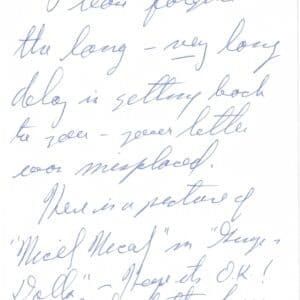 I can forgive
the long – very long
delay in getting back
to you – your letter
was misplaced.
Here is a picture of
"Nicely Nicely" in "Guys &
Dolls" – Hope its O.K!